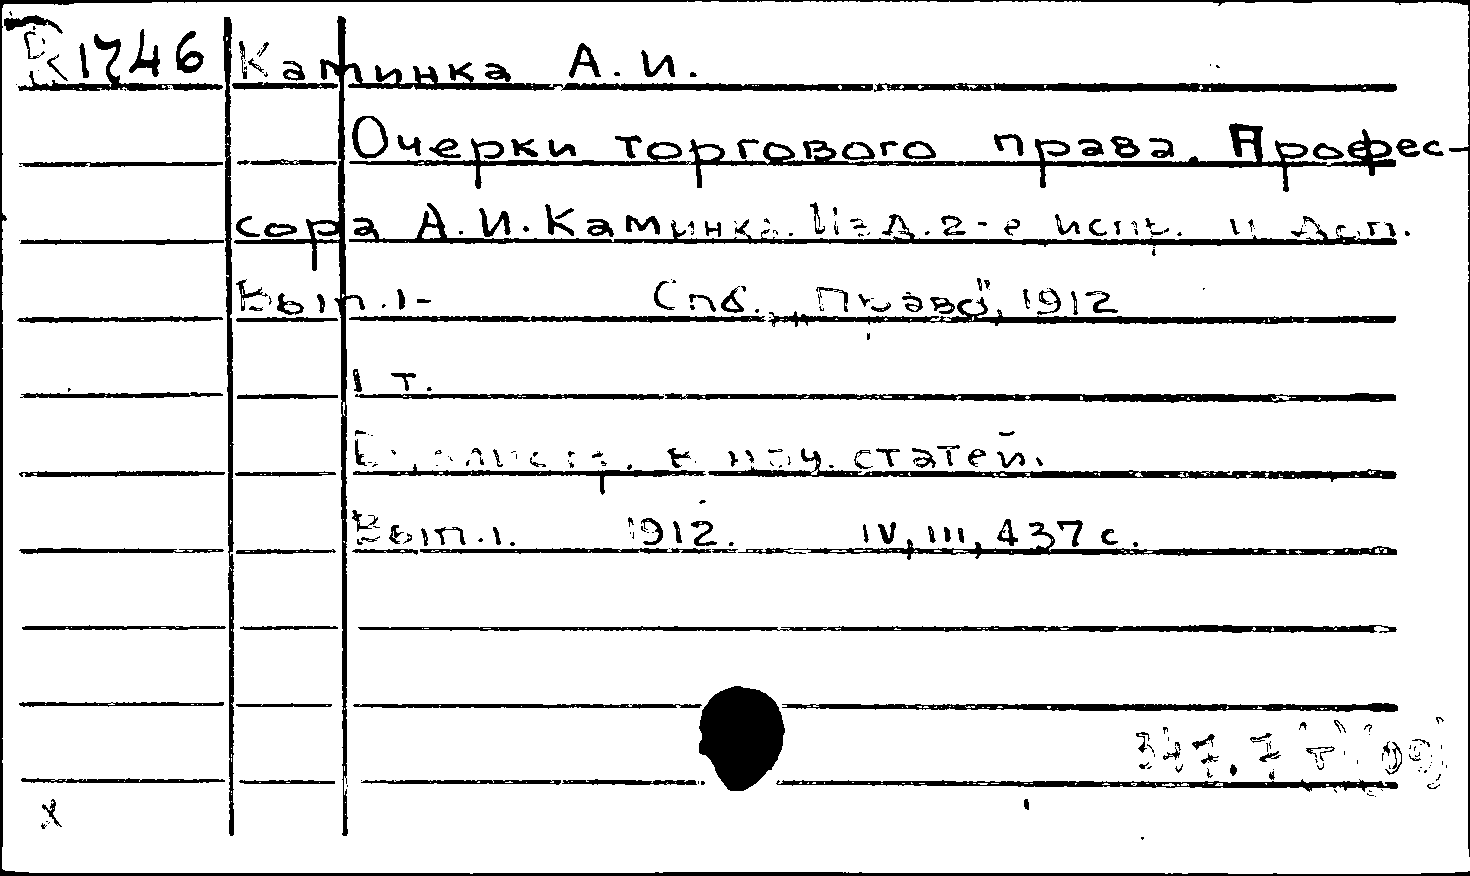 R 1746 Каминка А. И.
Очерки торгового права. Профес-
сора А. И. Каминка. Изд. 2-е испр. и доп.
Вып. 1- Спб., „Право", 1912
1 т.
статей.
Вып. 1. 1912. IV, III, 437 с.
347.7
x